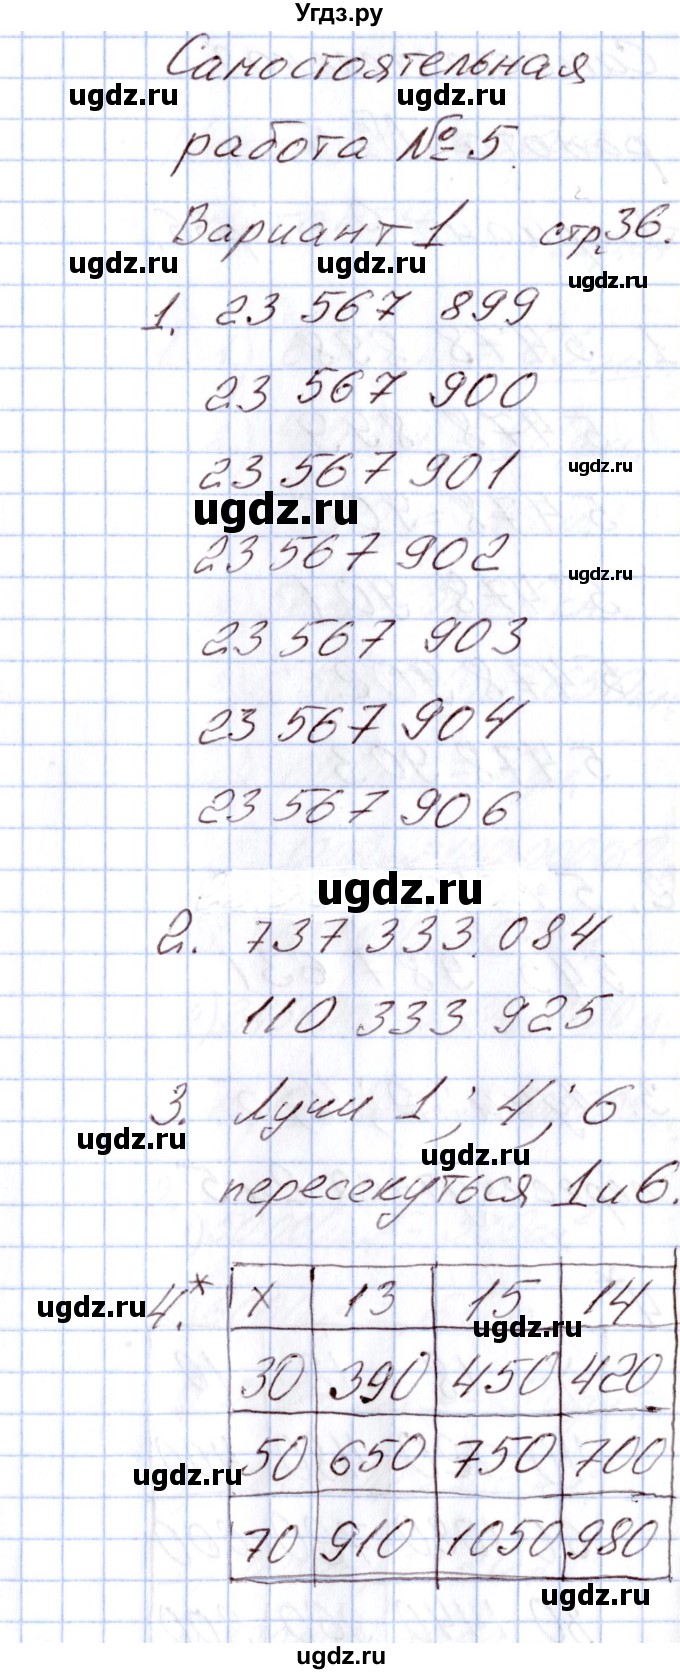 Угдз.ру
Самостоятельная
ugdz.ru ugdz.ru
работа № 5.
Вариант 1 стр. 36.
ugdz.ru ugdz.ru ugdz.ru
1. 23 567 899
23 567 900
23 567 901 ugdz.ru
ugdz.ru
23 567 902 ugdz.ru
23 567 903
23 567 904
23 567 906
ugdz.ru
2. 737 333 084
110 333 925
3. Лучи 1; 4; 6
ugdz.ru ugdz.ru
пересекуться 1 и 6.
4.* x 13 15 14
ugdz.ru ugdz.ru
30 390 450 420
50 650 750 700
ugdz.ru
70 910 1050 980
ugdz.ru
ugdz.ru